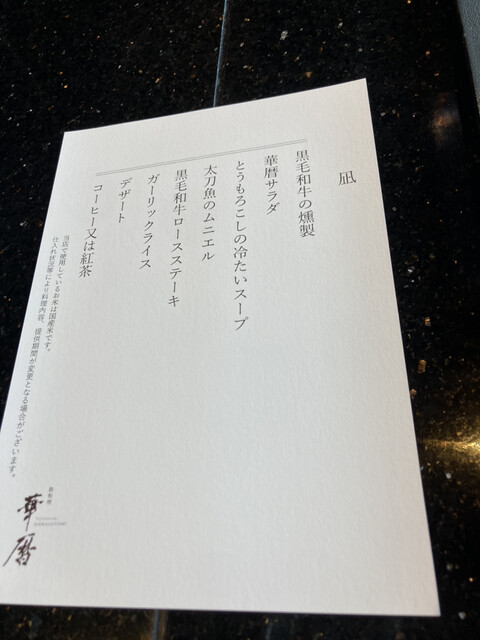 凪
黒毛和牛の燻製
華暦サラダ
とうもろこしの冷たいスープ
太刀魚のムニエル
黒毛和牛ロースステーキ
ガーリックライス
デザート
コーヒー又は紅茶
当店で使用しているお米は国産米です。
仕入れ状況等により料理内容、提供期間が変更となる場合がございます。
鉄板焼
華暦